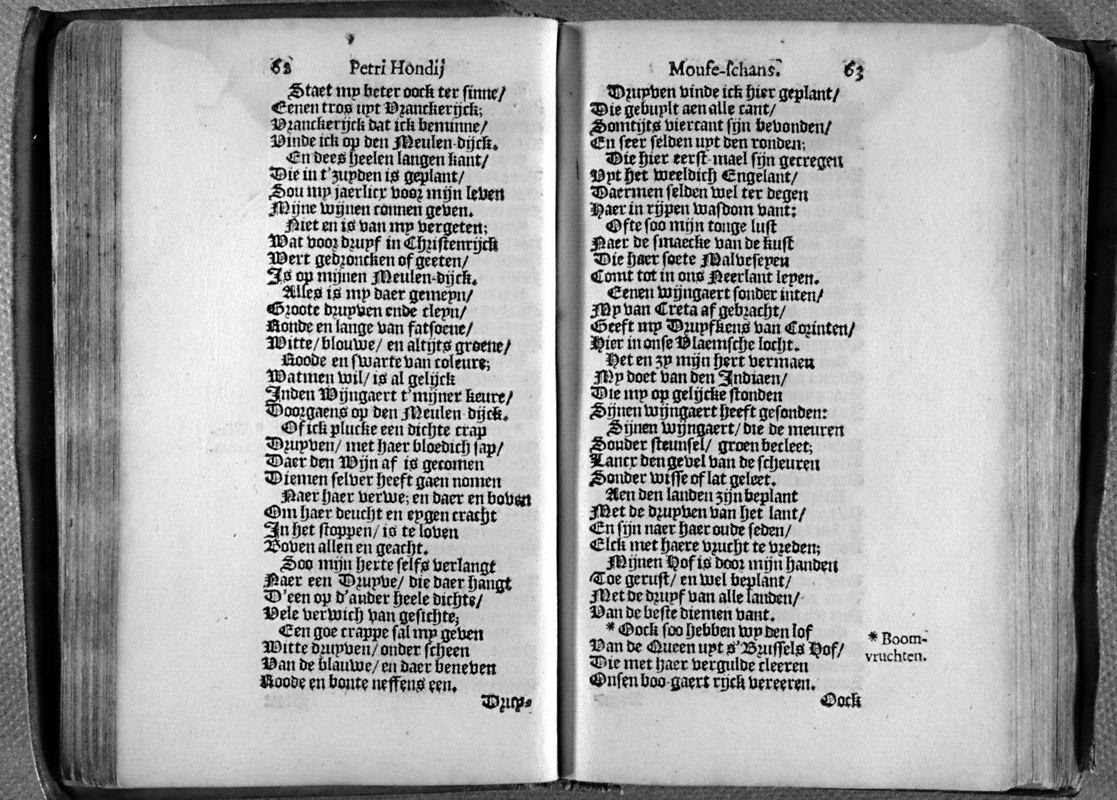 62 Petri Hondij
Staet my beter oock ter sinne/
Eenen tros uyt Vranckerijck;
Vranckerijck dat ick beminne/
Vinde ick op den Meulen-dijck.
En dees heelen langen kant/
Die in t'zuyden is geplant/
Sou my jaerlicx voor mijn leven
Mijne wijnen connen geven.
Niet en is van my vergeten;
Wat voor druyf in Christenrijck
Wert gedroncken of geeten/
Is op mijnen Meulen-dijck.
Alles is my daer gemeyn/
Groote druyven ende cleyn/
Ronde en lange van fatsoene/
Witte/ blouwe/ en altijts groene/
Roode en swarte van coleure;
Watmen wil/ is al gelijck
Inden Wijngaert t'mijner keure/
Doorgaens op den Meulen-dijck.
Of ick plucke een dichte crap
Druyven/ met haer bloedich sap/
Daer den Wijn af is gecomen
Diemen selver heeft gaen nomen
Naer haer verwe; en daer en boven
Om haer deucht en eygen cracht
In het stoppen/ is te loven
Boven allen en geacht.
Soo mijn herte selfs verlangt
Naer een Druyve/ die daer hangt
D'een op d'ander heele dichte/
Vele verwich van gesichte;
Een goe crappe sal my geven
Witte druyven/ onder scheen
Van de blauwe/ en daer beneven
Roode en bonte neffens een.
Druy-
Moufe-schans. 63
Druyven vinde ick hier geplant/
Die gebuylt aen alle cant/
Somtijts viercant sijn bevonden/
En seer selden uyt den ronden;
Die hier eerst-mael sijn gecregen
Uyt het weeldich Engelant/
Daermen selden wel ter degen
Haer in rijpen wasdom vant:
Ofte soo mijn tonge lust
Naer de smaecke van de kust
Die haer soete Malveseyen
Comt tot in ons Neerlant leyen.
Eenen wijngaert sonder inten/
My van Creta af gebracht/
Geeft my Druyfkens van Corinten/
Hier in onse Vlaemsche locht.
Het en zy mijn hert vermaen
My doet van den Indiaen/
Die my op gelijcke stonden
Sijnen wijngaert heeft gesonden:
Sijnen wijngaert/ die de meuren
Sonder steunsel/ groen becleet;
Lancx den gevel van de scheuren
Sonder wisse of lat geleet.
Aen den landen zijn beplant
Met de druyven van het lant/
En sijn naer haer oude seden/
Elck met haere vrucht te vreden;
Mijnen Hof is door mijn handen
Toe gerust/ en wel beplant/
Met de druyf van alle landen/
Van de beste diemen vant.
* Oock soo hebben wy den lof
Van de Queen uyt s'Brussels Hof/
Die met haer vergulde cleeren
Onsen boo-gaert rijck vereeren.
* Boom-
vruchten.
Oock